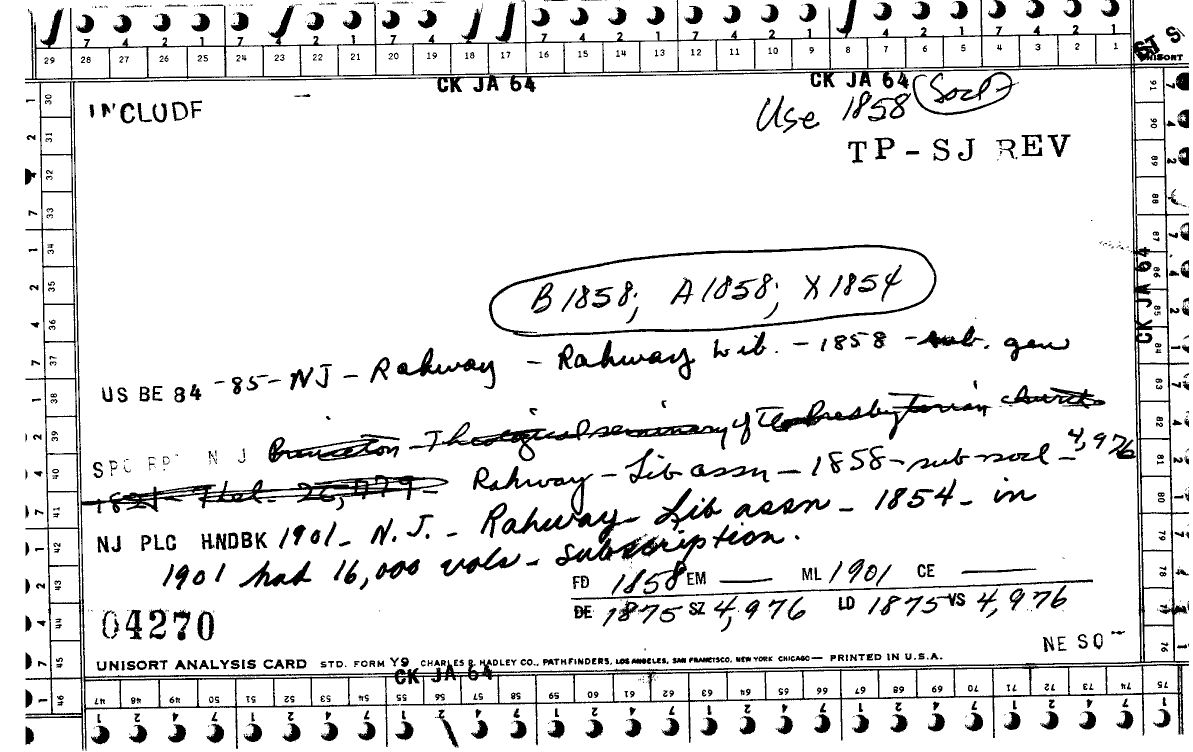 7 4 2 1 7 4 2 1 7 4 2 1 7 4 2 1 7 4 2 1 7 4 2 1
29 28 27 26 25 24 23 22 21 20 19 18 17 16 15 14 13 12 11 10 9 8 7 6 5 4 3 2 1
UNISORT
CK JA 64 CK JA 64
INCLUDE —
Use 1858 Socl
TP-SJ REV
CK JA 64
B 1858; A 1858; X 1854
US BE 84-85-NJ-Rahway - Rahway Lib. - 1858 - sub. gen
SPC RPT N J Princeton-Theological seminary of the Presbyterian church
1821- Theol. 26,779- Rahway - Lib assn - 1858 - sub socl - 4,976
NJ PLC HNDBK 1901- N.J. - Rahway- Lib assn - 1854 - in
1901 had 16,000 vols - subscription.
FD 1858 EM — ML 1901 CE —
DE 1875 SZ 4,976 LD 1875 VS 4,976
04270
NE SO
UNISORT ANALYSIS CARD STD. FORM Y9 CHARLES R. HADLEY CO., PATHFINDERS, LOS ANGELES, SAN FRANCISCO, NEW YORK CHICAGO — PRINTED IN U.S.A.
CK JA 64
46 47 48 49 50 51 52 53 54 55 56 57 58 59 60 61 62 63 64 65 66 67 68 69 70 71 72 73 74 75